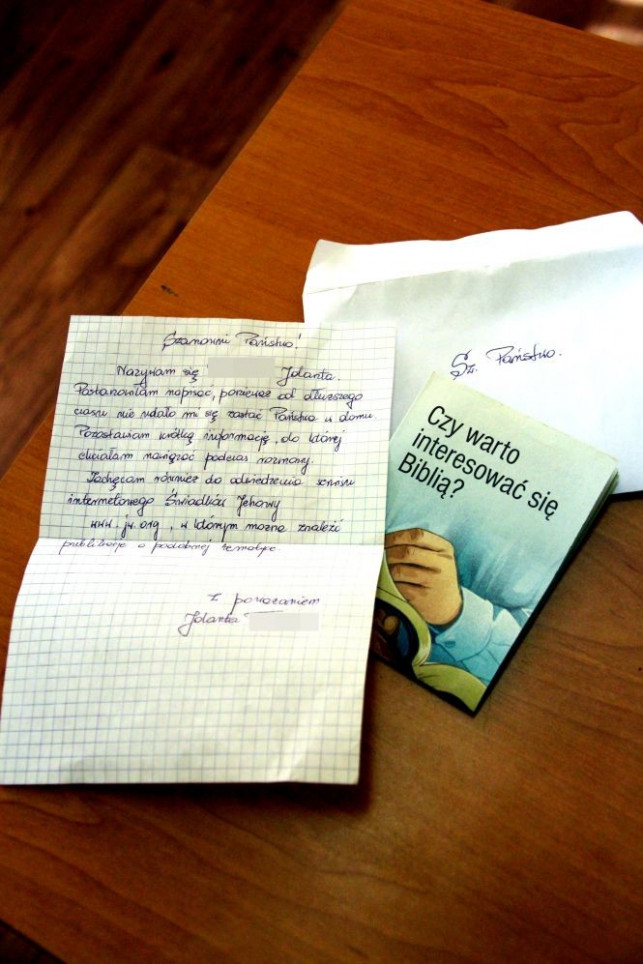 Szanowni Państwo!
Nazywam się Jolanta.
Postanowiłam napisać, ponieważ od dłuższego
czasu nie udało mi się zastać Państwa w domu.
Pozostawiam krótką informację, do której
chciałam nawiązać podczas rozmowy.
Zachęcam również do odwiedzenia serwisu
internetowego Świadków Jehowy
www.jw.org, w którym można znaleźć
publikacje o podobnej tematyce.
Z poważaniem
Jolanta
Sz. Państwo.
Czy warto
interesować się
Biblią?